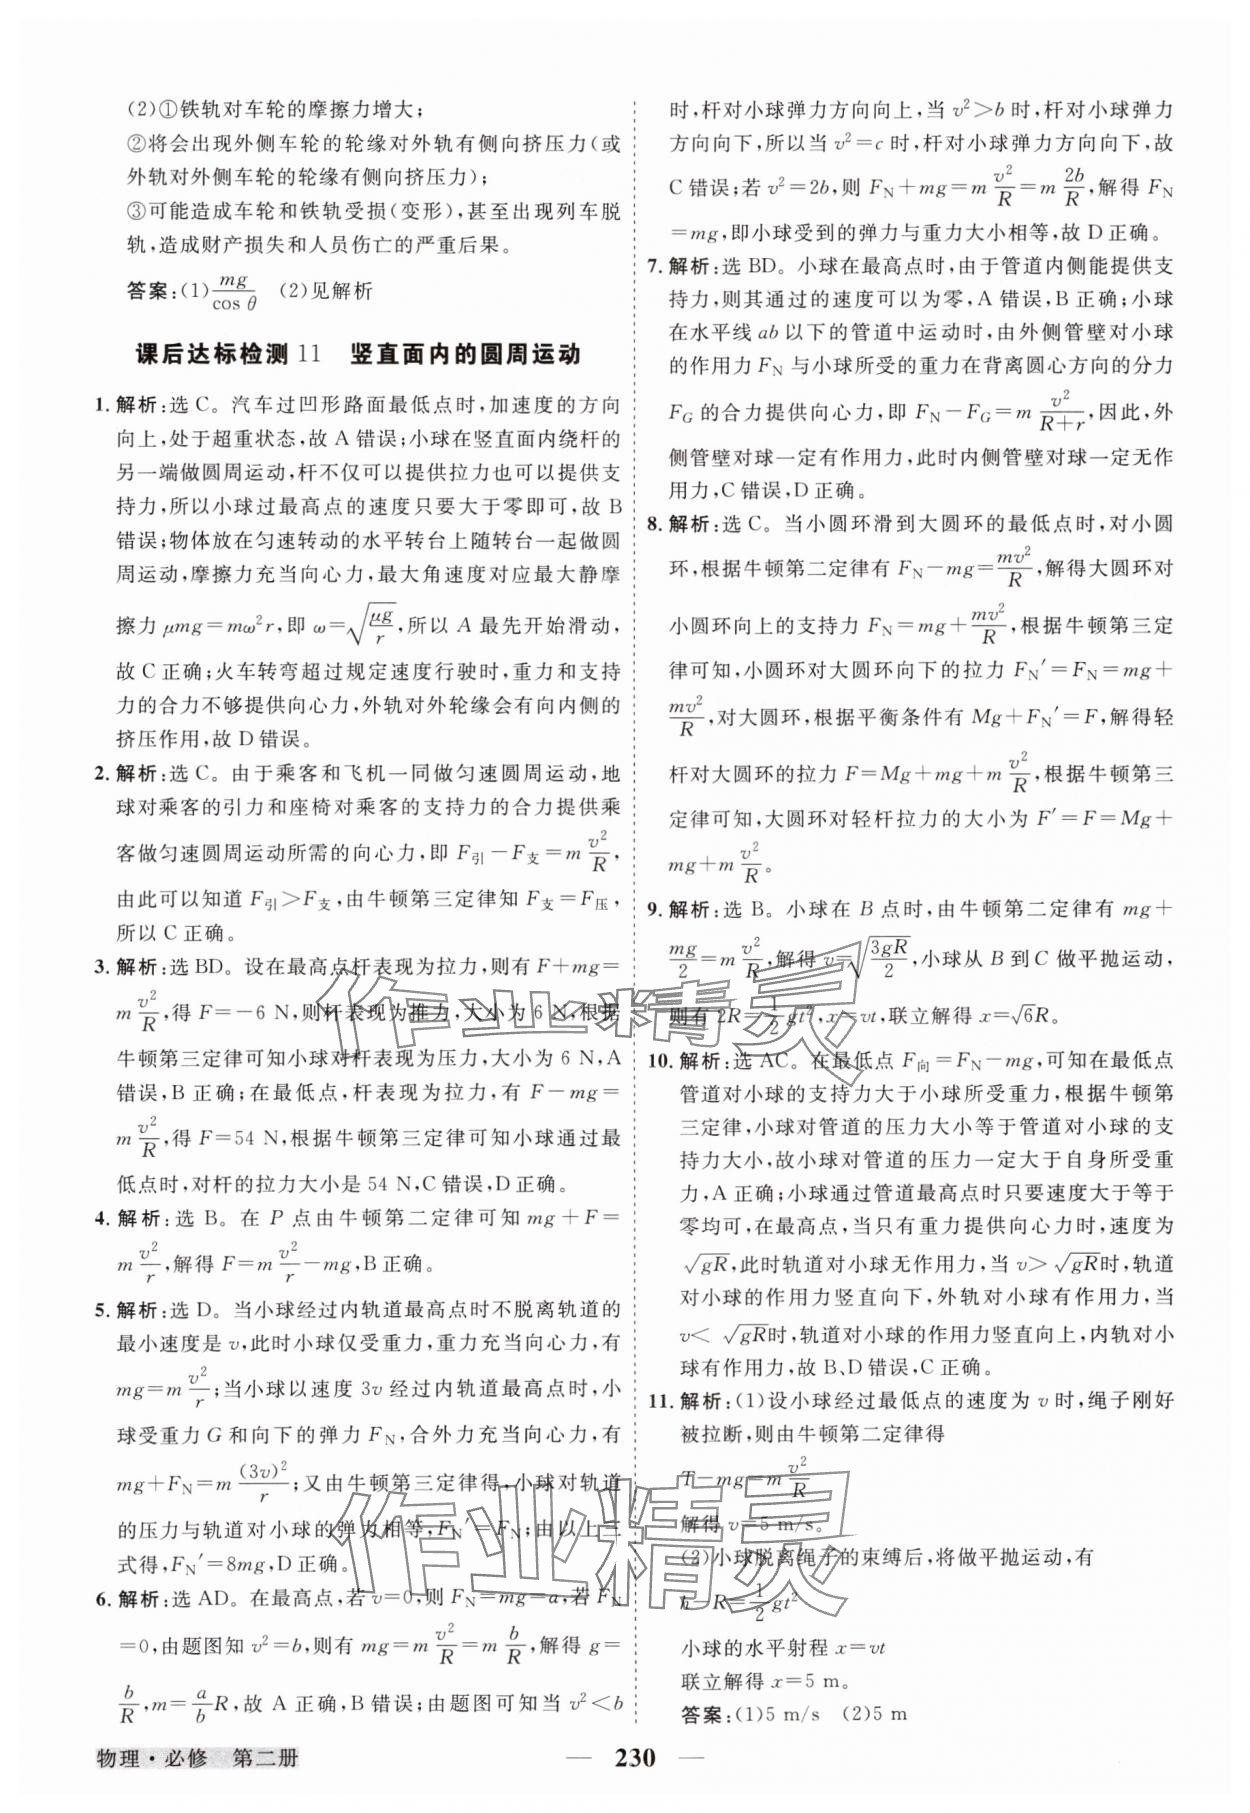 (2)①铁轨对车轮的摩擦力增大;
②将会出现外侧车轮的轮缘对外轨有侧向挤压力(或
外轨对外侧车轮的轮缘有侧向挤压力);
③可能造成车轮和铁轨受损(变形),甚至出现列车脱
轨,造成财产损失和人员伤亡的严重后果。
答案:(1)mg/cos θ (2)见解析
课后达标检测 11 竖直面内的圆周运动
1. 解析:选 C。汽车过凹形路面最低点时,加速度的方向
向上,处于超重状态,故 A 错误;小球在竖直面内绕杆的
另一端做圆周运动,杆不仅可以提供拉力也可以提供支
持力,所以小球过最高点的速度只要大于零即可,故 B
错误;物体放在匀速转动的水平转台上随转台一起做圆
周运动,摩擦力充当向心力,最大角速度对应最大静摩
擦力 μmg=mω²r,即 ω=√(μg/r),所以 A 最先开始滑动,
故 C 正确;火车转弯超过规定速度行驶时,重力和支持
力的合力不够提供向心力,外轨对外轮缘会有向内侧的
挤压作用,故 D 错误。
2. 解析:选 C。由于乘客和飞机一同做匀速圆周运动,地
球对乘客的引力和座椅对乘客的支持力的合力提供乘
客做匀速圆周运动所需的向心力,即 F引-F支=m v²/R,
由此可以知道 F引>F支,由牛顿第三定律知 F支=F压,
所以 C 正确。
3. 解析:选 BD。设在最高点杆表现为拉力,则有 F+mg=
m v²/R,得 F=-6 N,则杆表现为推力,大小为 6 N,根据
牛顿第三定律可知小球对杆表现为压力,大小为 6 N,A
错误,B 正确;在最低点,杆表现为拉力,有 F-mg=
m v²/R,得 F=54 N,根据牛顿第三定律可知小球通过最
低点时,对杆的拉力大小是 54 N,C 错误,D 正确。
4. 解析:选 B。在 P 点由牛顿第二定律可知 mg+F=
m v²/r,解得 F=m v²/r-mg,B 正确。
5. 解析:选 D。当小球经过内轨道最高点时不脱离轨道的
最小速度是 v,此时小球仅受重力,重力充当向心力,有
mg=m v²/r;当小球以速度 3v 经过内轨道最高点时,小
球受重力 G 和向下的弹力 FN,合外力充当向心力,有
mg+FN=m (3v)²/r;又由牛顿第三定律得,小球对轨道
的压力与轨道对小球的弹力相等,FN′=FN;由以上三
式得,FN′=8mg,D 正确。
6. 解析:选 AD。在最高点,若 v=0,则 FN=mg=a,若 FN
=0,由题图知 v²=b,则有 mg=m v²/R=m b/R,解得 g=
b/R,m=a/b R,故 A 正确,B 错误;由题图可知当 v²<b
时,杆对小球弹力方向向上,当 v²>b 时,杆对小球弹力
方向向下,所以当 v²=c 时,杆对小球弹力方向向下,故
C 错误;若 v²=2b,则 FN+mg=m v²/R=m 2b/R,解得 FN
=mg,即小球受到的弹力与重力大小相等,故 D 正确。
7. 解析:选 BD。小球在最高点时,由于管道内侧能提供支
持力,则其通过的速度可以为零,A 错误,B 正确;小球
在水平线 ab 以下的管道中运动时,由外侧管壁对小球
的作用力 FN 与小球的重力在背离圆心方向的分力
FG 的合力提供向心力,即 FN-FG=m v²/(R+r),因此,外
侧管壁对球一定有作用力,此时内侧管壁对球一定无作
用力,C 错误,D 正确。
8. 解析:选 C。当小圆环滑到大圆环的最低点时,对小圆
环,根据牛顿第二定律有 FN-mg=mv²/R,解得大圆环对
小圆环向上的支持力 FN=mg+mv²/R,根据牛顿第三定
律可知,小圆环对大圆环向下的拉力 FN′=FN=mg+
mv²/R,对大圆环,根据平衡条件有 Mg+FN′=F,解得轻
杆对大圆环的拉力 F=Mg+mg+m v²/R,根据牛顿第三
定律可知,大圆环对轻杆拉力的大小为 F′=F=Mg+
mg+m v²/R。
9. 解析:选 B。小球在 B 点时,由牛顿第二定律有 mg+
mg/2=m v²/R,解得 v=√(3gR/2),小球从 B 到 C 做平抛运动,
则有 2R=1/2 gt²,x=vt,联立解得 x=√6R。
10. 解析:选 AC。在最低点 F向=FN-mg,可知在最低点
管道对小球的支持力大于小球所受重力,根据牛顿第
三定律,小球对管道的压力大小等于管道对小球的支
持力大小,故小球对管道的压力一定大于自身所受重
力,A 正确;小球通过管道最高点时只要速度大于等于
零均可,在最高点,当只有重力提供向心力时,速度为
√gR,此时轨道对小球无作用力,当 v>√gR时,轨道
对小球的作用力竖直向下,外轨对小球有作用力,当
v<√gR时,轨道对小球的作用力竖直向上,内轨对小
球有作用力,故 B、D 错误,C 正确。
11. 解析:(1)设小球经过最低点的速度为 v 时,绳子刚好
被拉断,则由牛顿第二定律得
T-mg=m v²/R
解得 v=5 m/s。
(2)小球脱离绳子的束缚后,将做平抛运动,有
h-R=1/2 gt²
小球的水平射程 x=vt
联立解得 x=5 m。
答案:(1)5 m/s (2)5 m
作业精灵
作业精灵
物理·必修 第二册
— 230 —